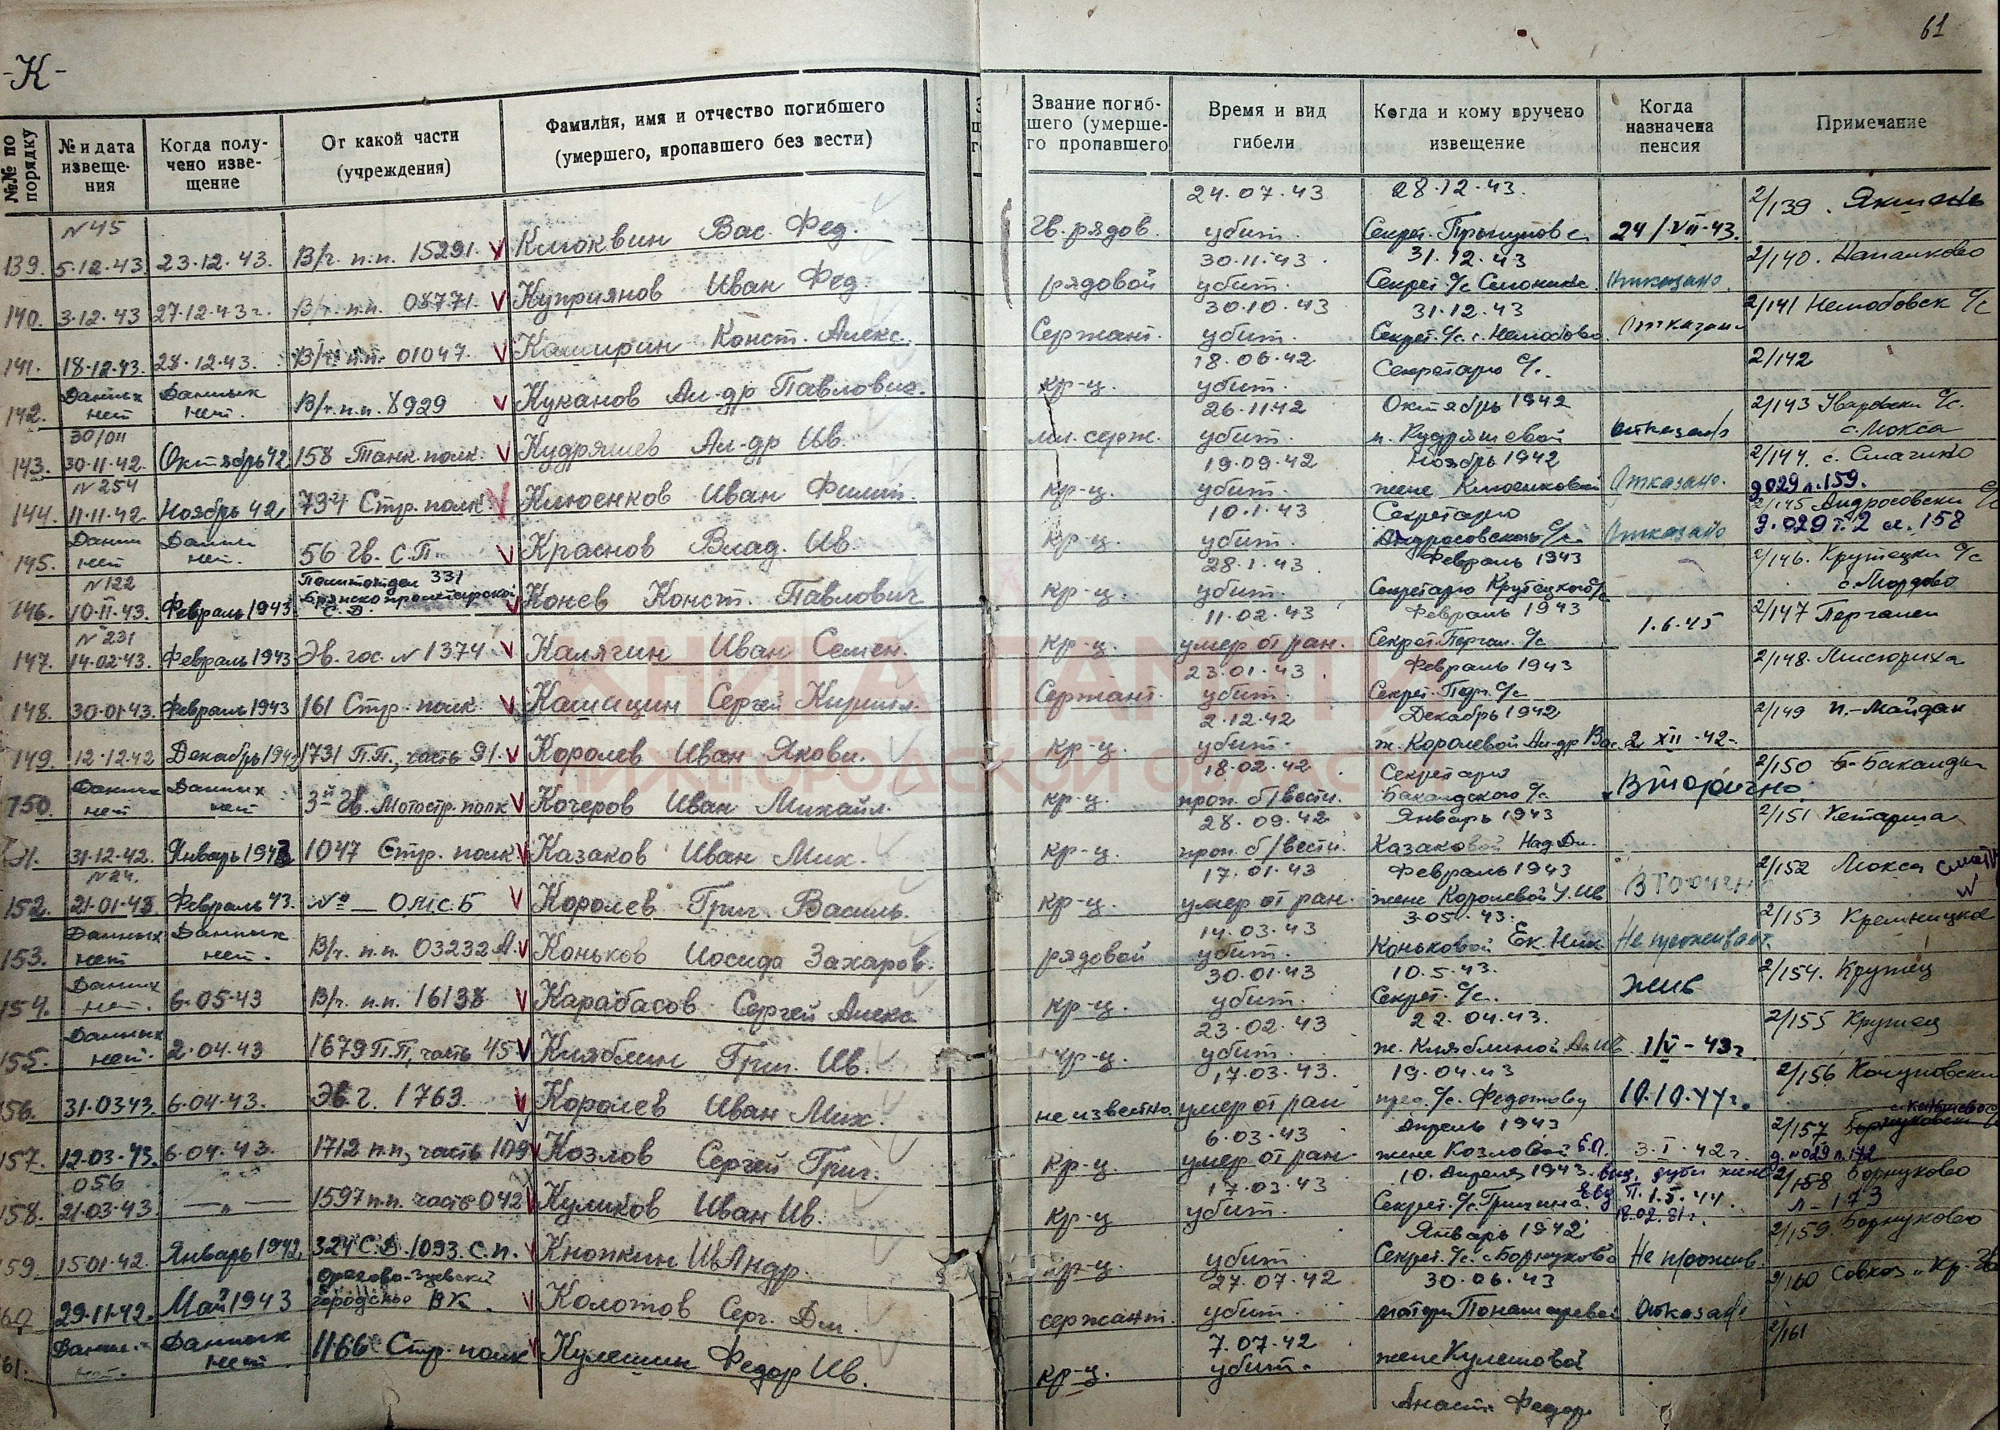 -К-
61
№№ по порядку
№ и дата извещения
Когда получено извещение
От какой части (учреждения)
Фамилия, имя и отчество погибшего (умершего, пропавшего без вести)
Звание погибшего (умершего пропавшего
Время и вид гибели
Когда и кому вручено извещение
Когда назначена пенсия
Примечание
139. №45 5.12.43 23.12.43. В/ч. п.п. 15291. V Клюквин Вас. Фед. Гв. рядов. 24.07.43 убит. 28.12.43. Секрет. 24/VII-43. 2/139.
140. 3.12.43 27.12.43г. В/ч. п.п. 08771. V Куприянов Иван Фед. рядовой 30.11.43. убит. 31.12.43 Секрет. с/с Отказано. 2/140. Напалково
141. 18.12.43. 28.12.43. В/ч п.п. 01047. V Каширин Конст. Алекс. Сержант. 30.10.43 убит. 31.12.43 Секрет. с/с. Отказано 2/141 с/с
142. Данных нет Данных нет. В/ч п.п. 8929 V Куканов Ал-др Павлович. кр-ц. 18.06.42 убит. Секретарю с/с. 2/142
143. 30/011 30.11.42. Октябрь 42 158 Танк. полк. V Кудряшев Ал-др Ив. мл. серж. 26.11.42 убит. Октябрь 1942 Кудряшевой отказано 2/143 с/с. с. Мокса
144. №254 11.11.42 Ноябрь 42, 734 Стр. полк. V Клюенков Иван Филип. кр-ц. 19.09.42 убит. Ноябрь 1942 жене Клюенковой Отказано. 2/144. с. Смагино д 029 л.159.
145. Данн нет Данн нет. 56 Гв. С.П. V Краснов Влад. Ив. кр-ц. 10.1.43 убит. Секретарю Андросовского с/с. Отказано 2/145 Андросовский с/с д.029 т.2 л. 158
146. №122 10-II-43. Февраль 1943 Политотдел 331 Брянско пролетарской С.Д. V Конев Конст. Павлович кр-ц. 28.1.43. убит. Февраль 1943 Секретарю Крутецкого с/с 2/146. Крутецкий с/с
147. №231 14.02.43. Февраль 1943 Эв. гос. №1374 V Калягин Иван Семен. кр-ц. 11.02.43 умер от ран. Февраль 1943 Секрет. Пергал. с/с 1.6.45 2/147 Пергалеи
148. 30.01.43. Февраль 1943 161 Стр. полк. V Сергей Кирилл. Сержант. 23.01.43 убит. Февраль 1943 Секрет. с/с 2/148.
149. 12.12.42 Декабрь 1942 1731 П.П., часть 91. V Королев Иван Яковл. кр-ц. 2.12.42 убит. Декабрь 1942 ж. Королевой Ал-др Вас. 2 XII-42- 2/149 п.-Майдан
150. Данных нет Данных нет 3й Гв. Мотостр. полк V Кочеров Иван Михайл. кр-ц. 18.02.42. проп. б/вести. Секретарю Бакалдского с/с Вторично 2/150 Б-Бакалды
31.12.42. Январь 1943 1047 Стр. полк V Казаков Иван Мих. кр-ц. 28.09.42 проп. б/вести. Январь 1943 Казаковой Над. Дм. 2/151
152. №24. 21.01.43 Февраль 43. № ОЛСБ V Королев Григ. Василь. кр-ц. 17.01.43 умер от ран. Февраль 1943 жене Королевой У. Ив Вторичн 2/152 Мокса
153. Данных нет Данных нет. В/ч. п.п. 03232 А. V Коньков Иосиф Захаров. рядовой 14.03.43 убит. 3.05.43. Коньковой Ек. Ник Не проживает 2/153 Кремницкое
154. Данных нет. 6.05.43 В/ч. п.п. 16138 V Карабасов Сергей Алекс кр-ц. 30.01.43 убит. 10.5.43. Секрет. с/с. Жив 2/154. Крутец
155. Данных нет. 2.04.43 1679 П.П, часть 45 V Кляблин Григ. Ив. кр-ц. 23.02.43 убит. 22.04.43. ж. Кляблиной Ан. Ив 1/V-43г 2/155 Крутец
156. 31.03.43. 6.04.43. Эв. г. 1763. V Королев Иван Мих. неизвестно. 17.03.43. умер от ран 19.04.43 пред. с/с. Федотову 10.10.44г. 2/156
157. 12.03.43. 6.04.43. 1712 п.п., часть 109 V Козлов Сергей Григ. кр-ц. 6.03.43 умер от ран. Апрель 1943 жене Козловой Е.П. 3.I.42г. 2/157 д. №029 л.172
158. 056 21.03.43. —„— 1597 п.п. часть 042 V Куликов Иван Ив. кр-ц 17.03.43 убит. 10. Апреля 1943. Секрет. с/с. 1.5.44. 18.02.81г. 2/158 Борнуково л-173
159. 15.01.42. Январь 1942, 324 С.Д. 1093. с.п. V Кнопкин Ив Андр. кр-ц. убит Январь 1942 Секрет. с/с. с Борнуково Не прожив. 2/159. Борнуково
160 29.11.42. Май 1943 Орехово-Зуевский городское ВК. V Колотов Серг. Дм. сержант. 27.07.42 убит. 30.06.43 матери Отказано 2/160 Совхоз
161. Данных нет. Данных нет. 1166 Стр. полк V Кулешин Федор Ив. кр-ц. 7.07.42 убит. жене Кулешовой Анаст. Федор. 2/161
КНИГА ПАМЯТИ
НИЖЕГОРОДСКОЙ ОБЛАСТИ